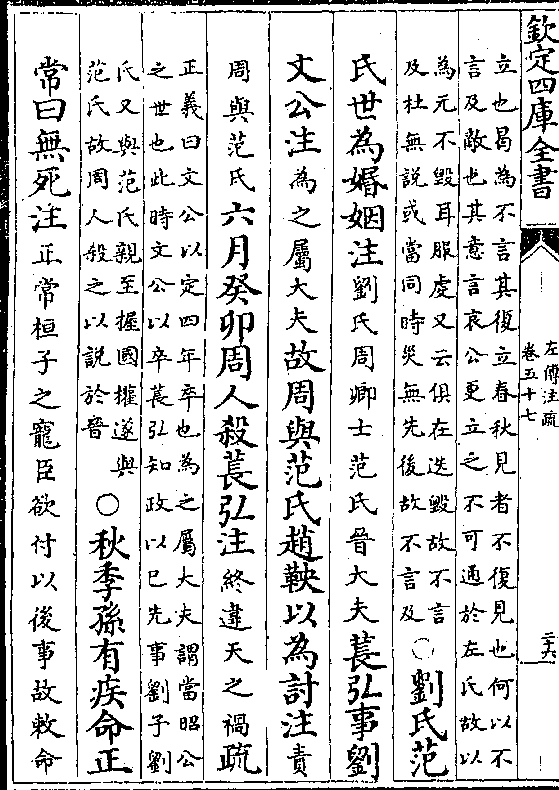 欽定四庫全書
左傳注疏
卷五十七
二十六
立也曷為不言其復立春秋見者不復見也何以不
言及敵也其意言哀公更立之不可通於左氏故以
為元不毀耳服虔又云俱在迭毀故不言
及杜無説或當同時災無先後故不言及
○劉氏范
氏世為婚姻注劉氏周卿士范氏晉大夫萇弘事劉
文公注為之屬大夫故周與范氏趙鞅以為討注責
周與范氏六月癸卯周人殺萇弘注終違天之禍疏
正義曰文公以定四年卒也為之屬大夫謂當昭公
之世也此時文公以卒萇弘知政以已先事劉子劉
氏又與范氏親至握國權遂與
范氏故周人殺之以説於晉
○秋季孫有疾命正
常曰無死注正常桓子之寵臣欲付以後事故敕命